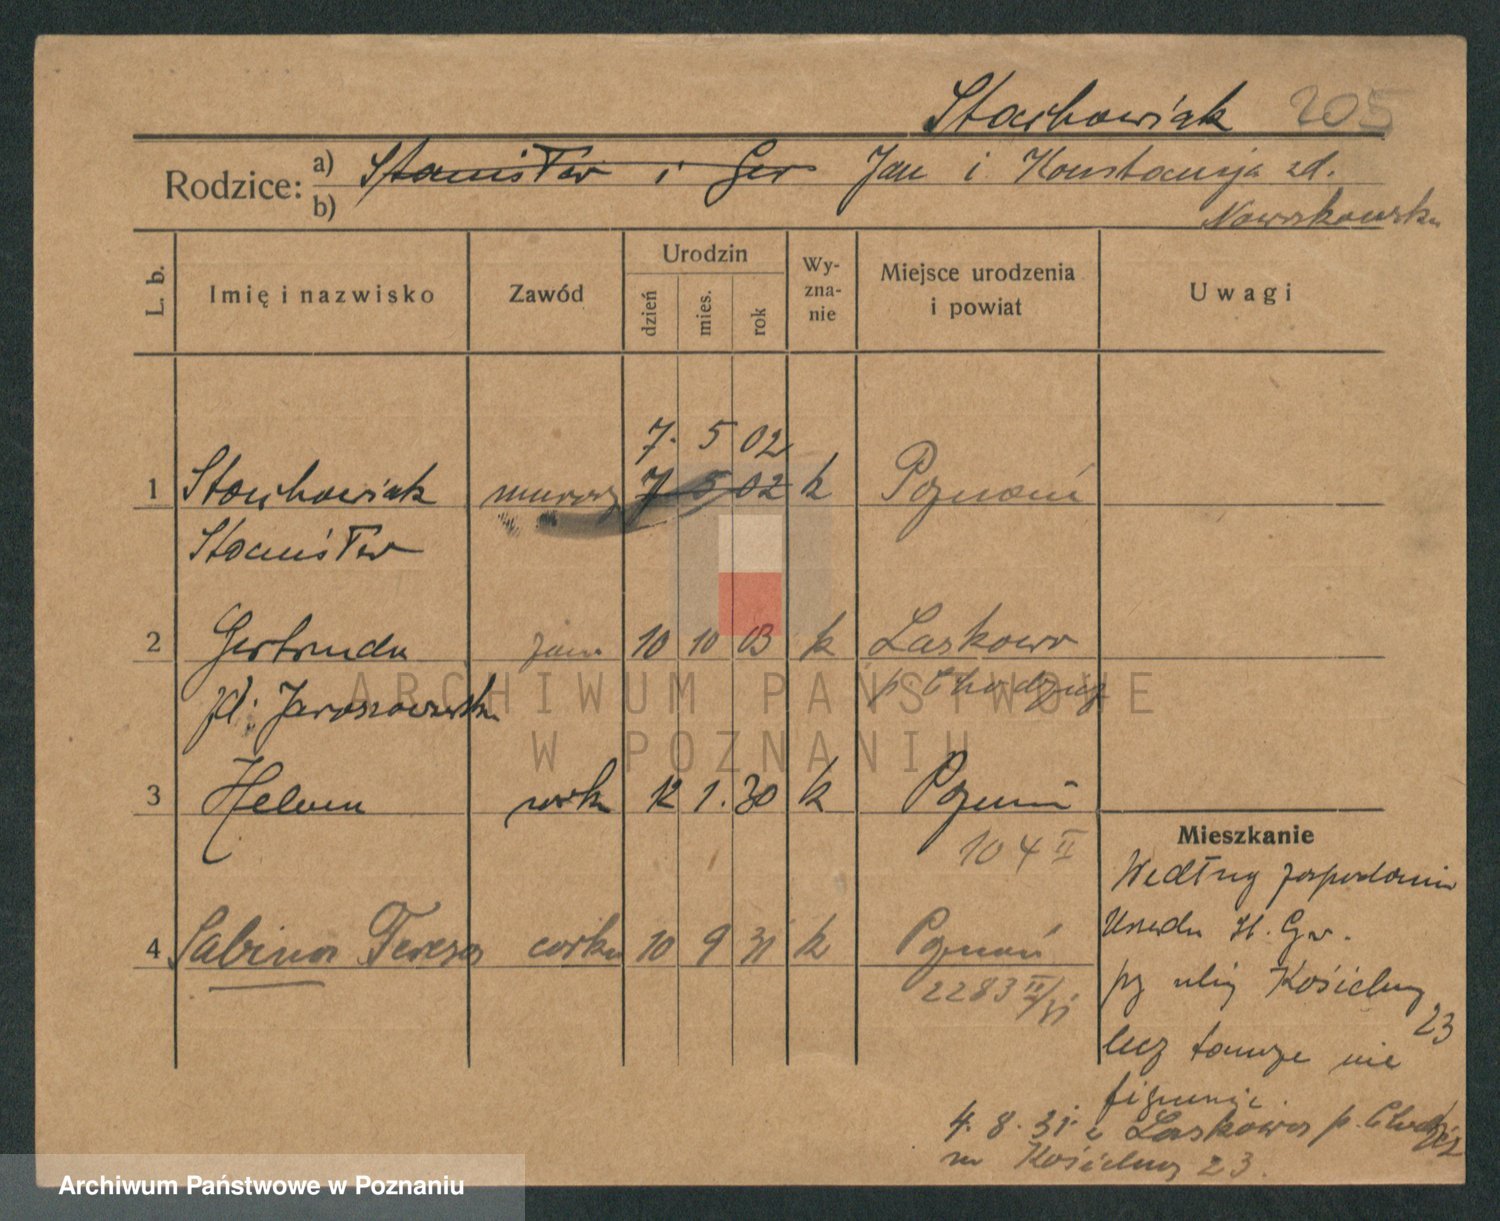 Stachowiak 205
Rodzice: a) Stanisław i Ger Jan i Konstancja zd.
b) Nowakowska
L. b. Imię i nazwisko Zawód Urodzin dzień mies. rok Wy-zna-nie Miejsce urodzenia i powiat Uwagi
7. 5 02
1 Stachowiak murarz 7 5 02 k Poznań
Stanisław
2 Gertruda żona 10 10 03 k Laskowo
p. Chodzież
3 Helena córka 12 1. 30 k Poznań
104 II
Mieszkanie
Według
4 Sabina Teresa córka 10 9 31 k Poznań
Urzędu
2283 II/31
przy ulicy Kościelnej
23
lecz tamże nie
figuruje.
4. 8. 31. z Laskowo p. Chodzież
na Kościelną 23.
ARCHIWUM PAŃSTWOWE
W POZNANIU
Archiwum Państwowe w Poznaniu